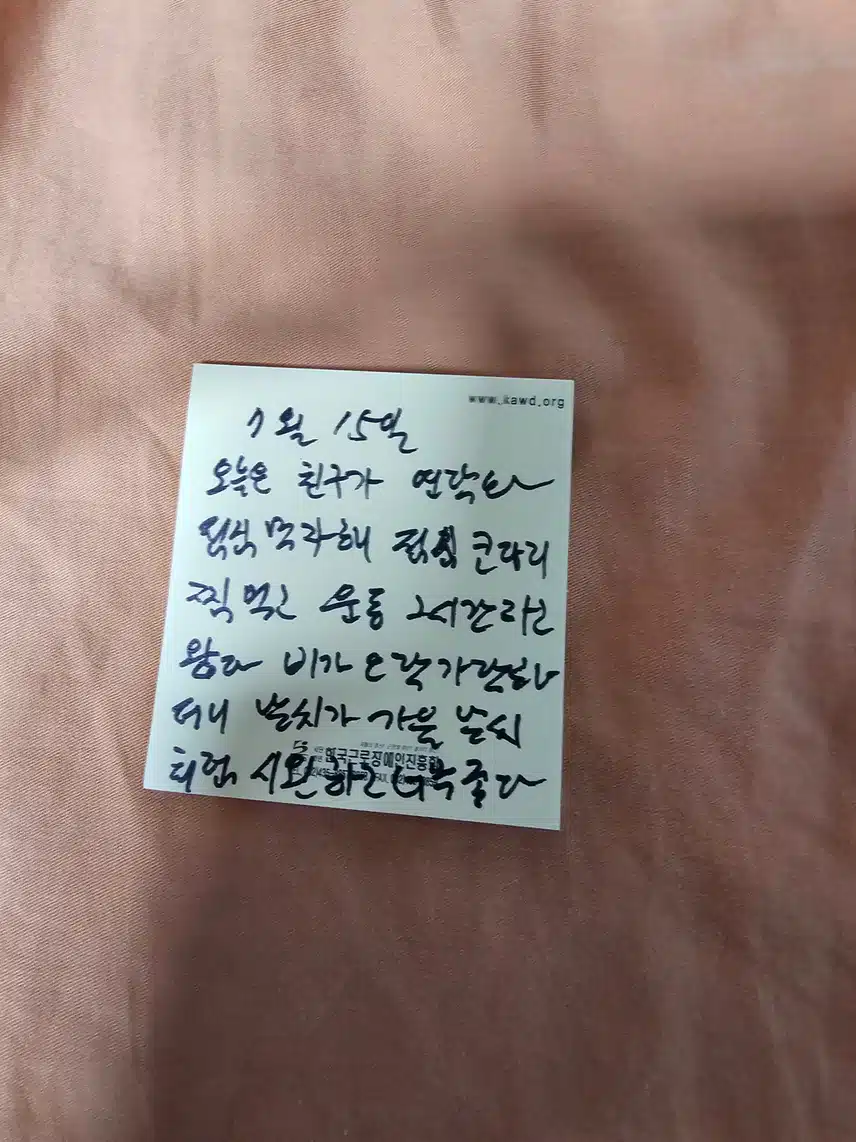 www.kawd.org
7월 15일
오늘은 친구가 연락와
점심먹자해 점심 코다리
찜먹고 운동 2시간하고
왔다 비가 오락가락하
더니 날씨가 가을 날씨
한국근로장애인진흥회
처럼 시원하고 너무 좋다